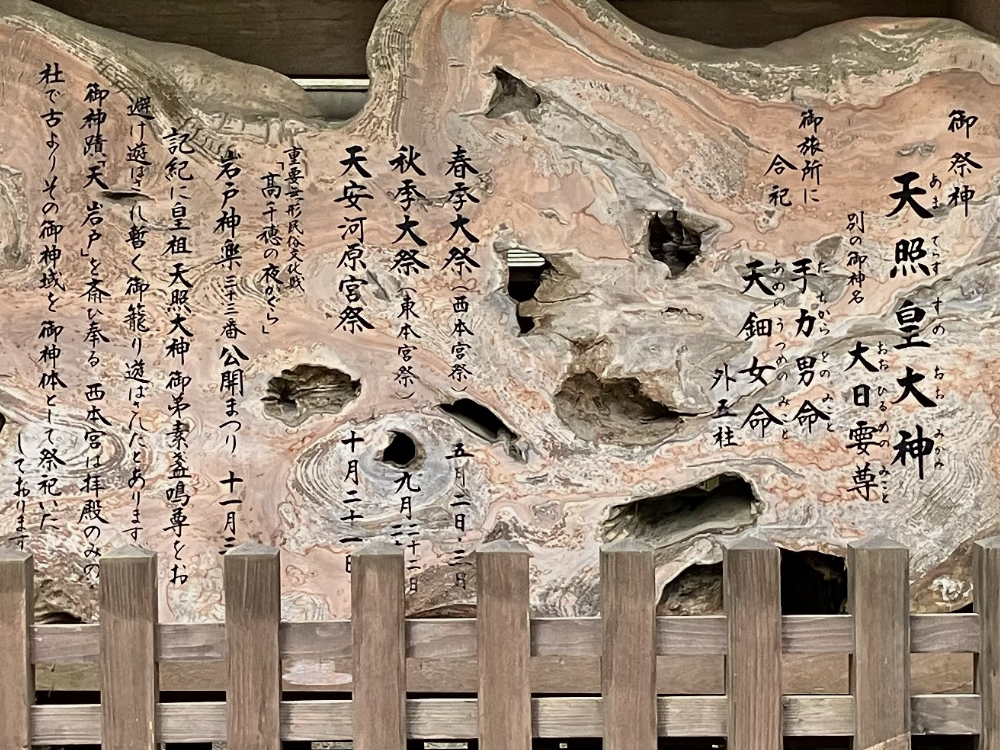 御祭神
天照皇大神
あま てらす すめ おお みかみ
別の御神名
大日孁尊
おお ひるめの みこと
御旅所に
合祀
手力男命
た ちから をの みこと
天鈿女命
あめの うづめの みこと
外五柱
春季大祭(西本宮祭) 五月二日・三日
秋季大祭(東本宮祭) 九月二十二日
天安河原宮祭 十月二十一日
重要無形民俗文化財
「高千穂の夜かぐら」
岩戸神楽三十三番公開まつり 十一月
記紀に皇祖天照大神御弟素盞嗚尊をお
避け遊ばされ暫く御籠り遊ばされたとあります
御神蹟「天岩戸」を斎ひ奉る 西本宮は拝殿のみの
社で古よりその御神域を御神体として祭祀いた
しております